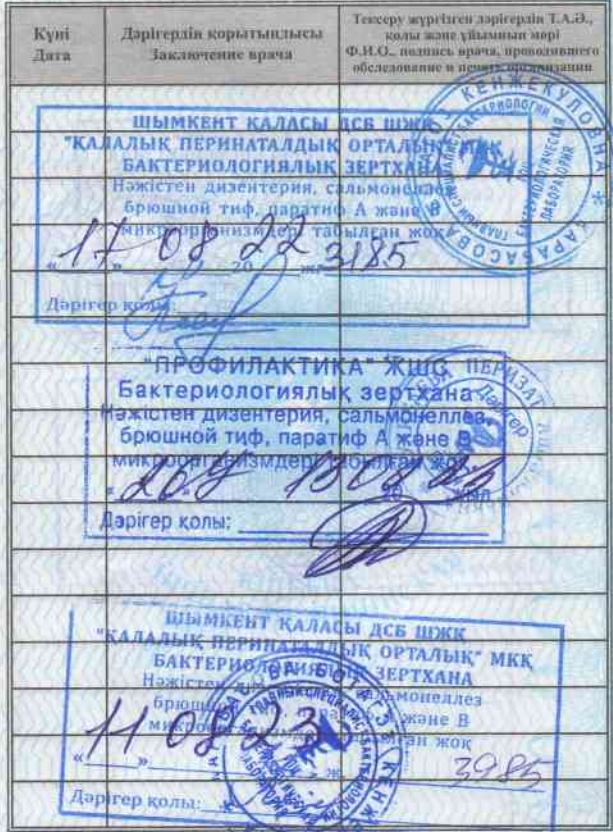 Күні
Дата
Дәрігердің қорытындысы
Заключение врача
Тексеру жүргізген дәрігердің Т.А.Ә.,
қолы және ұйымның мөрі
Ф.И.О., подпись врача, проводившего
обследование и печать организации
ШЫМКЕНТ ҚАЛАСЫ ДСБ ШЖҚ
"ҚАЛАЛЫҚ ПЕРИНАТАЛДЫҚ ОРТАЛЫҚ"
БАКТЕРИОЛОГИЯЛЫҚ ЗЕРТХАНА
Нәжістен дизентерия, сальмонеллез
брюшной тиф, паратиф А және В
микроорганизмдер табылған жоқ
17 08 22 3185
Дәрігер қолы:
КЕНЖЕКУЛОВНА * САРАБАСОВА
ГЛАВНЫЙ СПЕЦИАЛИСТ БАКТЕРИОЛОГИИ
БАКТЕРИОЛОГИЧЕСКАЯ
ЛАБОРАТОРИЯ
"ПРОФИЛАКТИКА" ЖШС
Бактериологиялық зертхана
Нәжістен дизентерия, сальмонеллез,
брюшной тиф, паратиф А және В
микроорганизмдері табылған жоқ
Дәрігер қолы:
ПЕРИЗАТ
Дәрігер
ШЫМКЕНТ ҚАЛАСЫ ДСБ ШЖҚ
"ҚАЛАЛЫҚ ПЕРИНАТАЛДЫҚ ОРТАЛЫҚ" МКҚ
БАКТЕРИОЛОГИЯЛЫҚ ЗЕРТХАНА
Нәжістен сальмонеллез
брюшной және В
жоқ
11 08 23 3985
Дәрігер қолы: